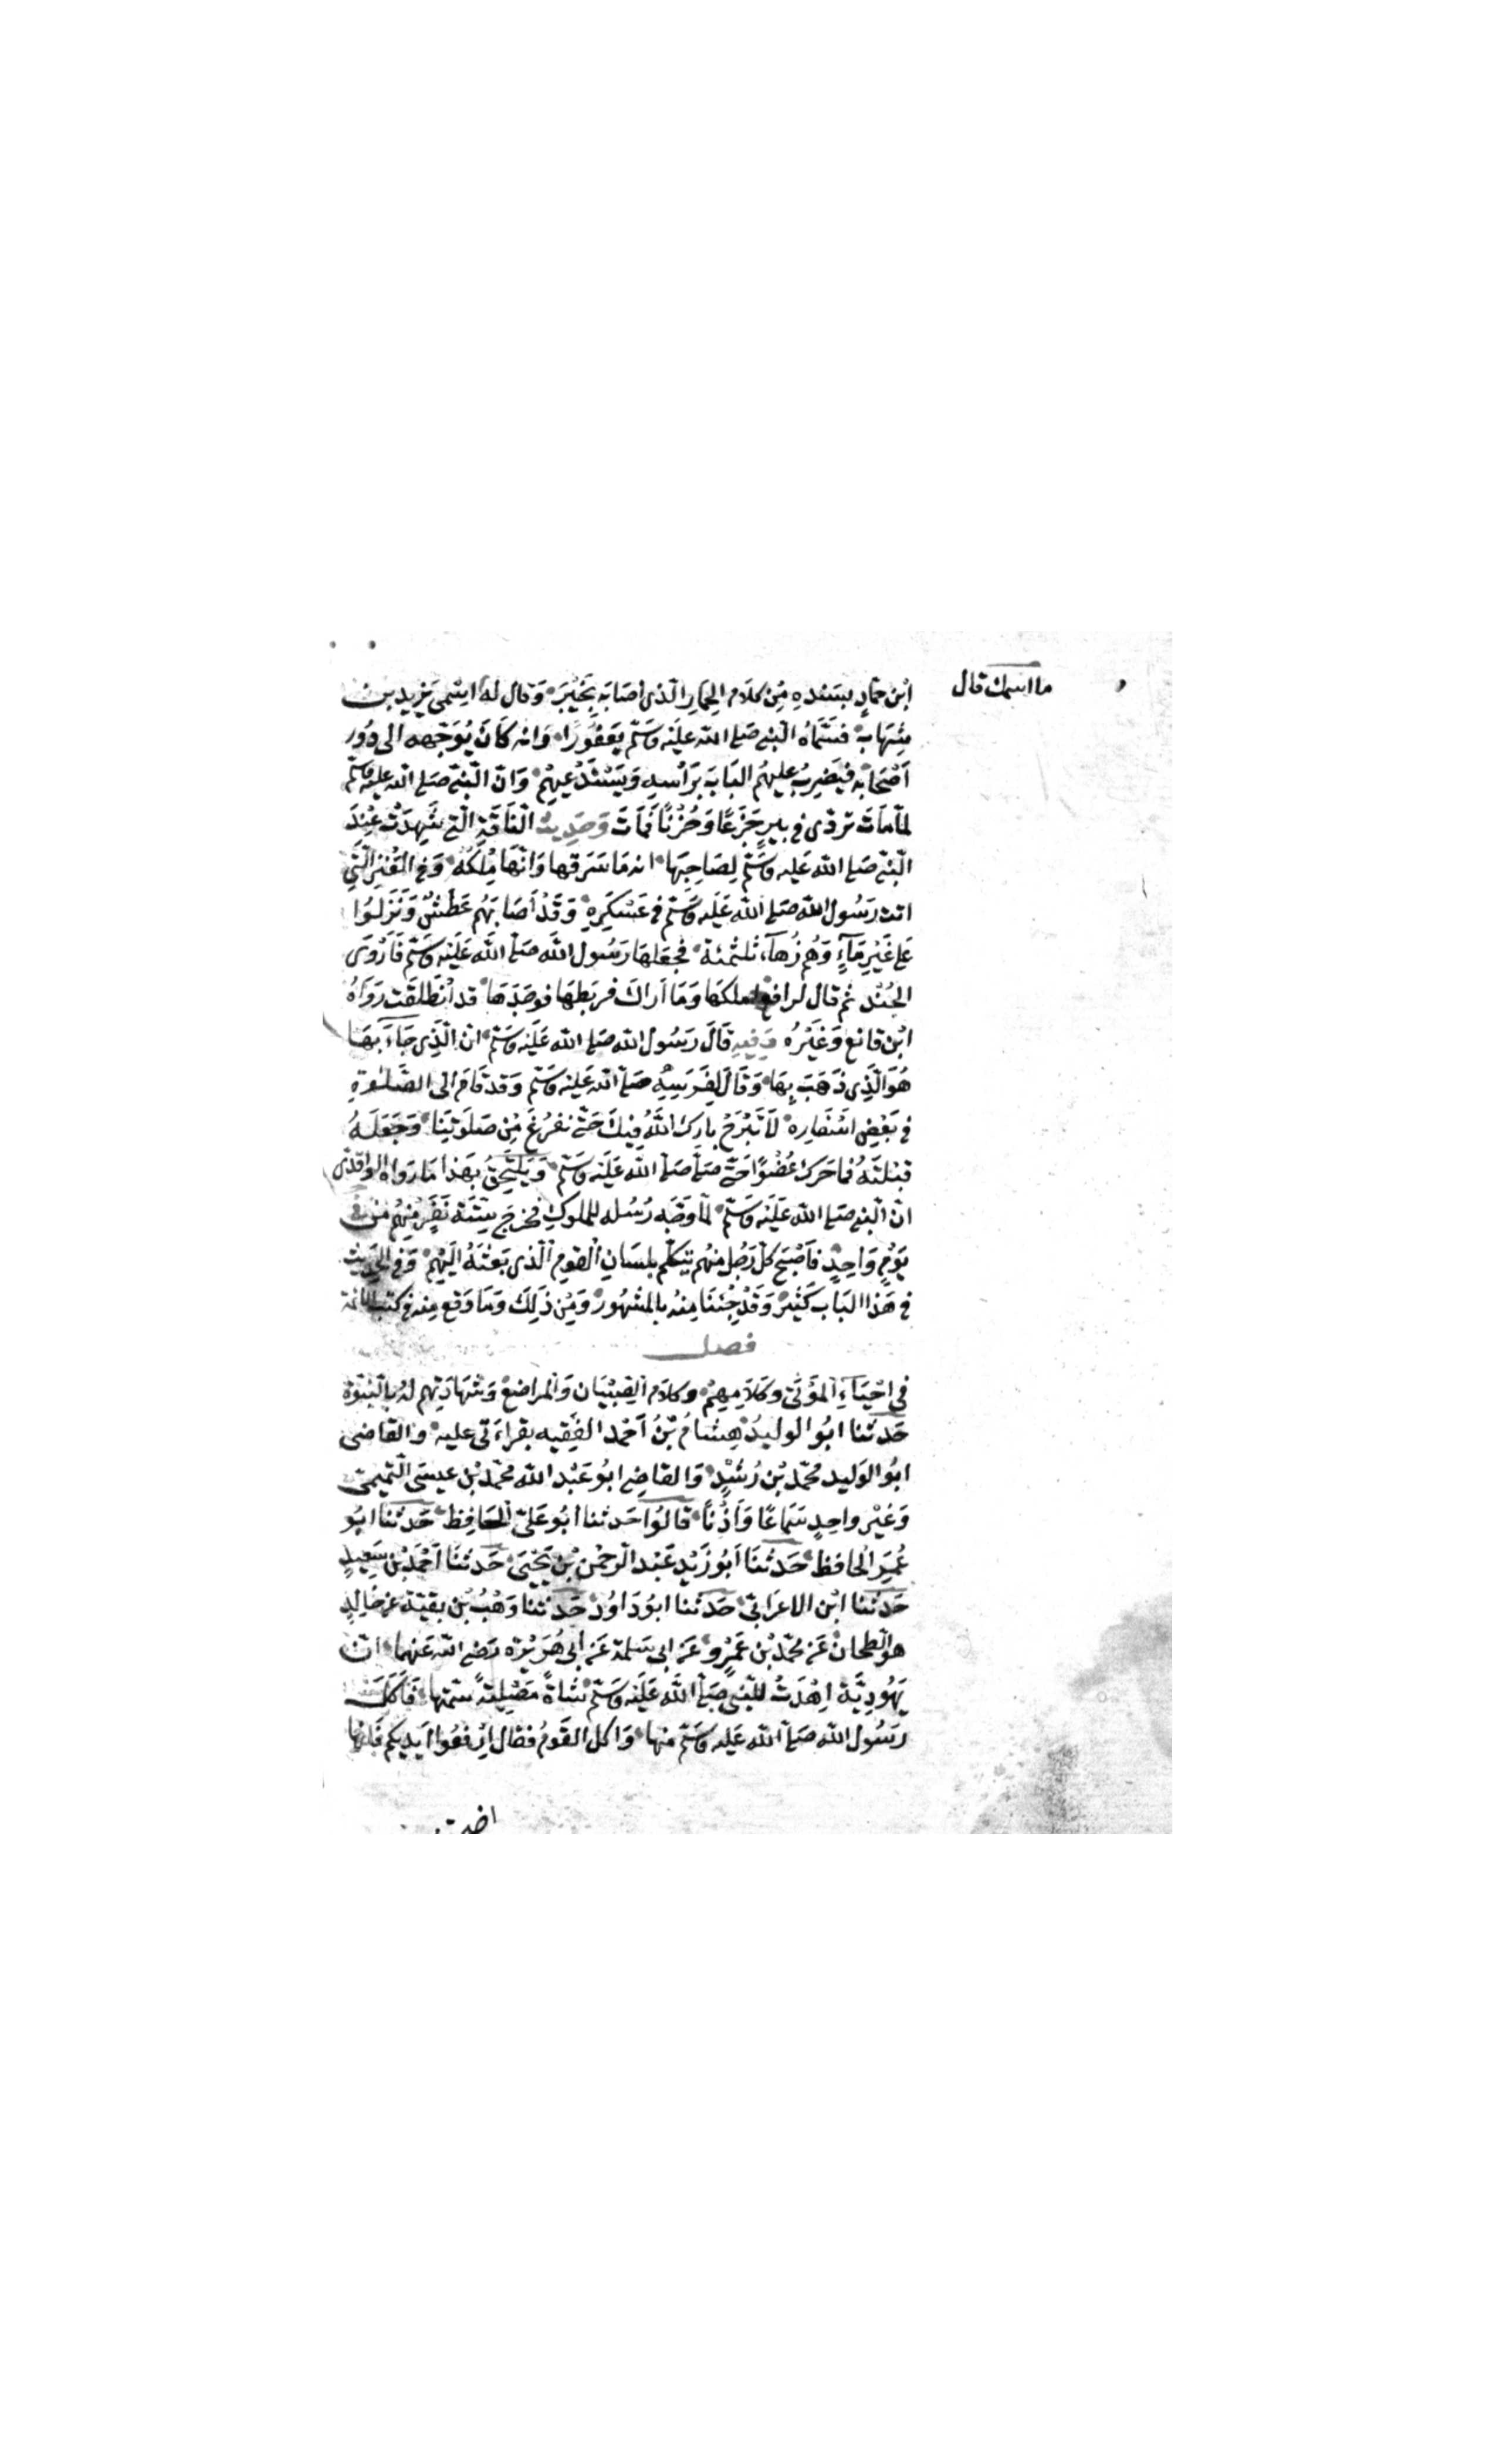 ما اسمك قال
ابْن حمّادٍ بسَندِهِ مِنْ كلَام الحِمَارِ الّذى اَصَابَه بِخَيْبَرَ وَقال لَه اسْمى يَزيد بن
شِهَابٌ فسَمّاه النّبى صَلى الله عَليْه وَسَلّم يَعفُورًا وَانه كَانَ يُوَجّهه الى دُور
اَصْحَابه فيَضرِبُ عليهُم البَابَ بَرَأسِهِ وَيَسْتَدْعِيهِمْ وَانّ النّبىّ صَلى الله عليه وسلم
لمّا مَات تردّى فى بيرٍ جَزَعًا وَحُزْنًا فَمَاتَ وَحَدِيث النّاقَةِ الّتى شَهِدَتْ عِنْدَ
النّبىّ صَلى الله عَليه وسَلّم لِصَاحِبهَا انه مَا سَرَقها وَانّهَا مِلْكَهُ وَفى العَنْز الّتى
اتت رَسُول الله صَلى الله عَليْه وَسَلّم فى عَسْكَرِهِ وَقَدْ اَصَابَهُم عَطَشٌ وَنَزَلُوا
عَلى غَيْرِ مَآءٍ وَهُم زُهَآء ثلثمئة فحَلبَهَا رَسُول الله صَلى الله عَليْه وَسَلّم فَاَرْوَى
الجُنْد ثم قال لرافع املكهَا وَمَا اَراكَ فربَطهَا فوجَدَهَا قد انْطَلقَت رَوَاهُ
ابْن قانع وَغَيْرُه وَفيه قَالَ رَسُول الله صَلى الله عَليْه وَسَلّم انّ الّذِى جَآءَ بهَا
هُوَ الّذِى ذهَبَ بِهَا وَقَالَ لِفَرَسِهِ صَلى الله عَليْه وَسَلّم وَقد قَامَ الى الصّلوةِ
فى بَعْضِ اسْفَارِه لَا تَبْرَحْ بارك اللهُ فيكَ حَتّى نفرُغَ مِنْ صَلَوتِنَا وَجَعَلهُ
قبْلتَهُ فما حَرك عُضْوًا حَتّى صَلى صَلى الله عَليْه وَسَلّم وَيَلْتَحِقُ بهَذا مَا رَوَاه الواقدىّ
انّ النّبى صَلى الله عَليْه وَسَلّم لمّا وَجّه رُسُله للملوكِ فخرَجَ سِتّة نَفَرٍ مِنهُم فى
يَوْمٍ وَاحِدٍ فاَصْبَح كلّ رَجُل مِنهُم يتكلّم بلسَانِ القومِ الّذى بَعَثهُ الَيْهِمْ وَفى الحَديث
فى هَذا البَاب كَثيْرٌ وَقَدْ جِئْنَا مِنهُ بالمشهُور وَمِنْ ذَلِكَ وَمَا وَقَع مِنه فى كتب الائمة
فصل
فى احْيَآءِ المَوْتَى وكَلَامِهِمْ وكلَام الصِبْيَان وَالمراضع وَشهَادَتِهم لهُ بالنُّبُوّة
حَدثنا ابُو الوليدُ هِشامُ بْنُ اَحْمد الفَقِيه بقراءَتى عَليه والقاضى
ابُو الوَليد مُحمّد بْن رُشْدٍ وَالقاضِى ابُو عَبْد الله محمّد بْن عيسَى التّميمىّ
وَغَيْر واحِدٍ سَمَاعًا وَاِذْنًا قالُوا حَدثنا ابُو عَلىّ الحَافِظ حَدثَنا ابُو
عُمَرَ الحافظ حَدثنَا اَبُو زَيْدٍ عَبْد الرّحمْن بْن يَحْيَى حَدثنَا اَحْمَد بْن سَعِيدٍ
حَدثنا ابْن الاعْرَابىّ حَدثنا ابُو دَاوُد حَدثنا وَهْبُ بْن بقيّة عَنْ خالِدٍ
هو الطحّان عَنْ محمّد بْن عَمْرٍو عَن ابى سَلمة عَن ابى هُرَيْرَة رَضى الله عَنهما انّ
يَهُودِيّة اَهْدَتْ للنّبىّ صَلى الله عَليْه وَسَلّم شَاةً مَصْلِيّةً سَمّتها فَاَكَلَ
رَسُول الله صَلى الله عَليْه وَسَلّم منها وَاكل القَوْمُ فقال ارْفعُوا اَيدِيكم فَانّها